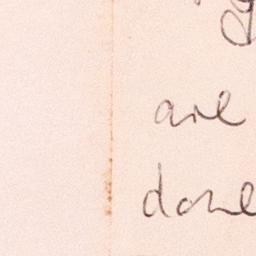 are
done